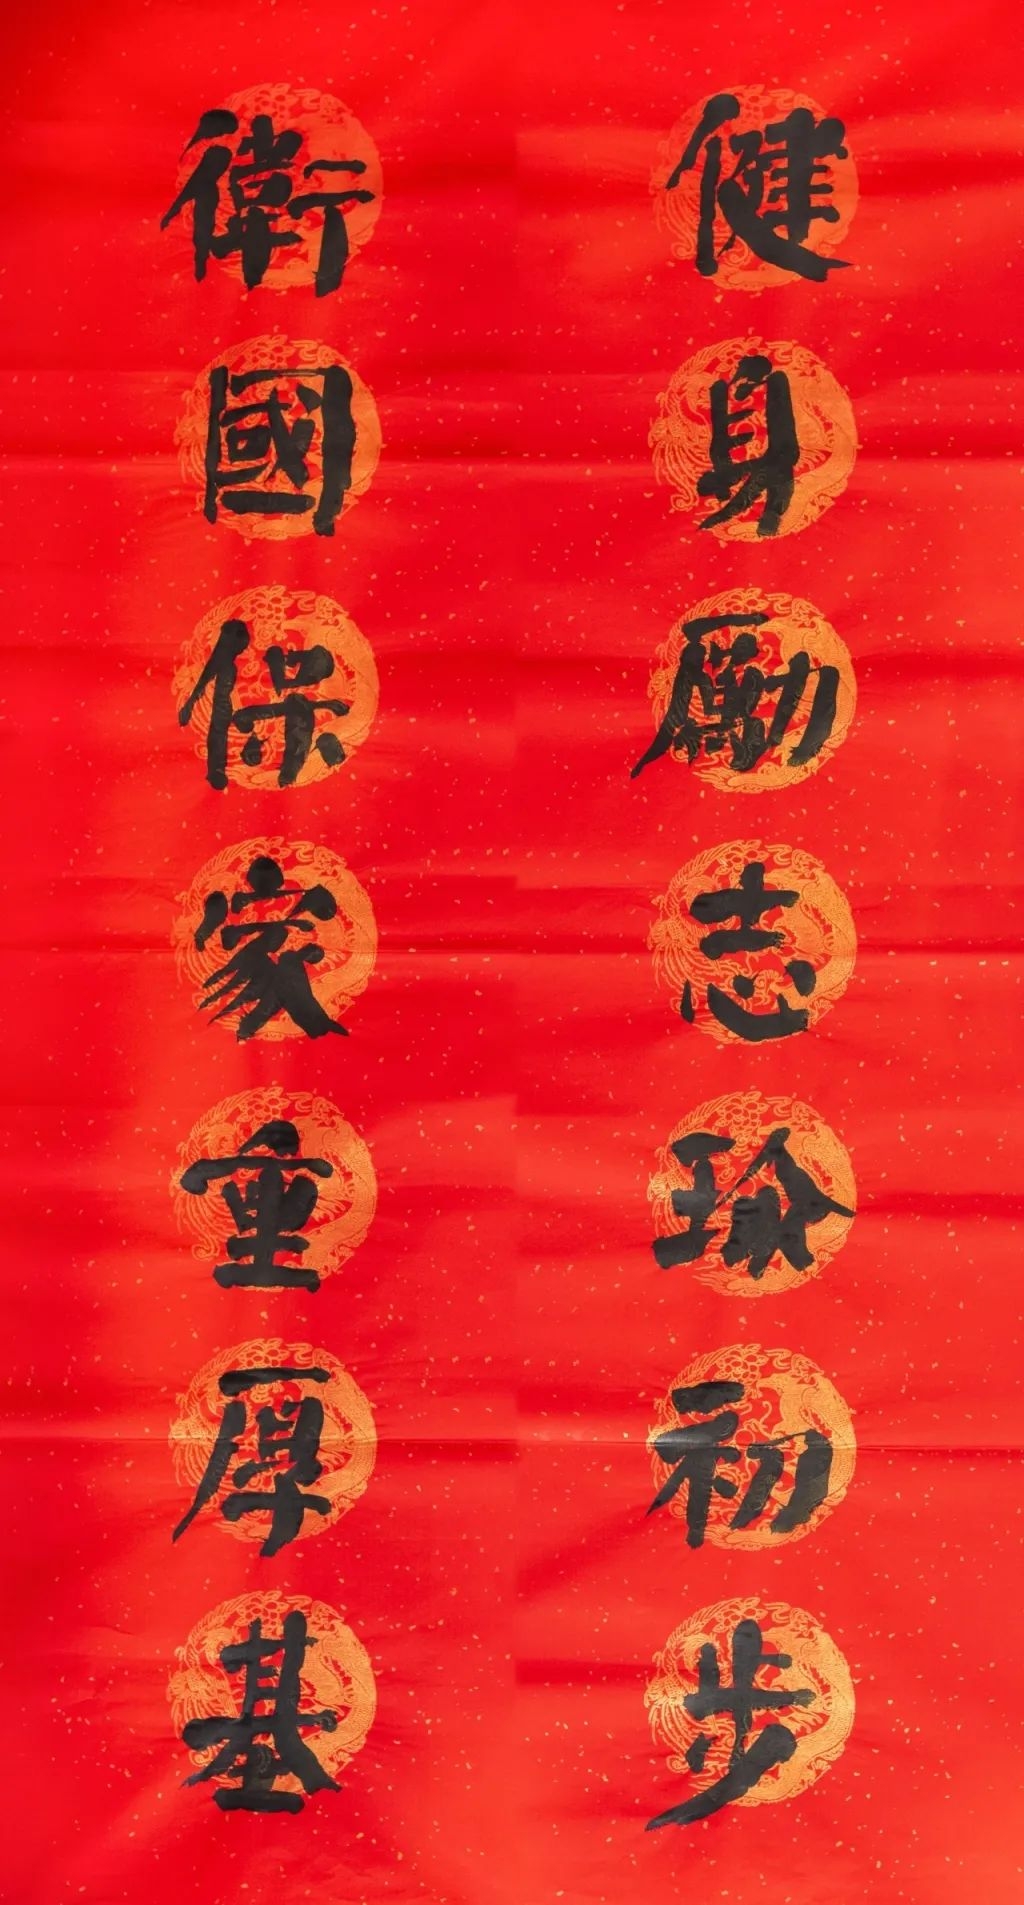 健身勵志瑜初步
衛國保家重厚基